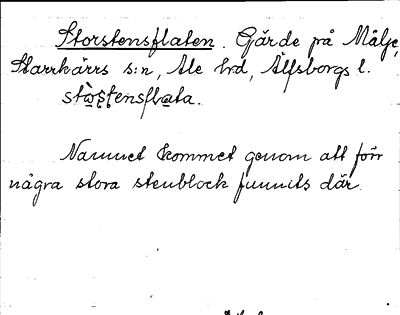 Storstensflaten. Gärde på Målje,
Starrkärrs s:n, Ale hrd, Älfsborgs l.
Namnet kommet genom att förr
några stora stenblock funnits där.